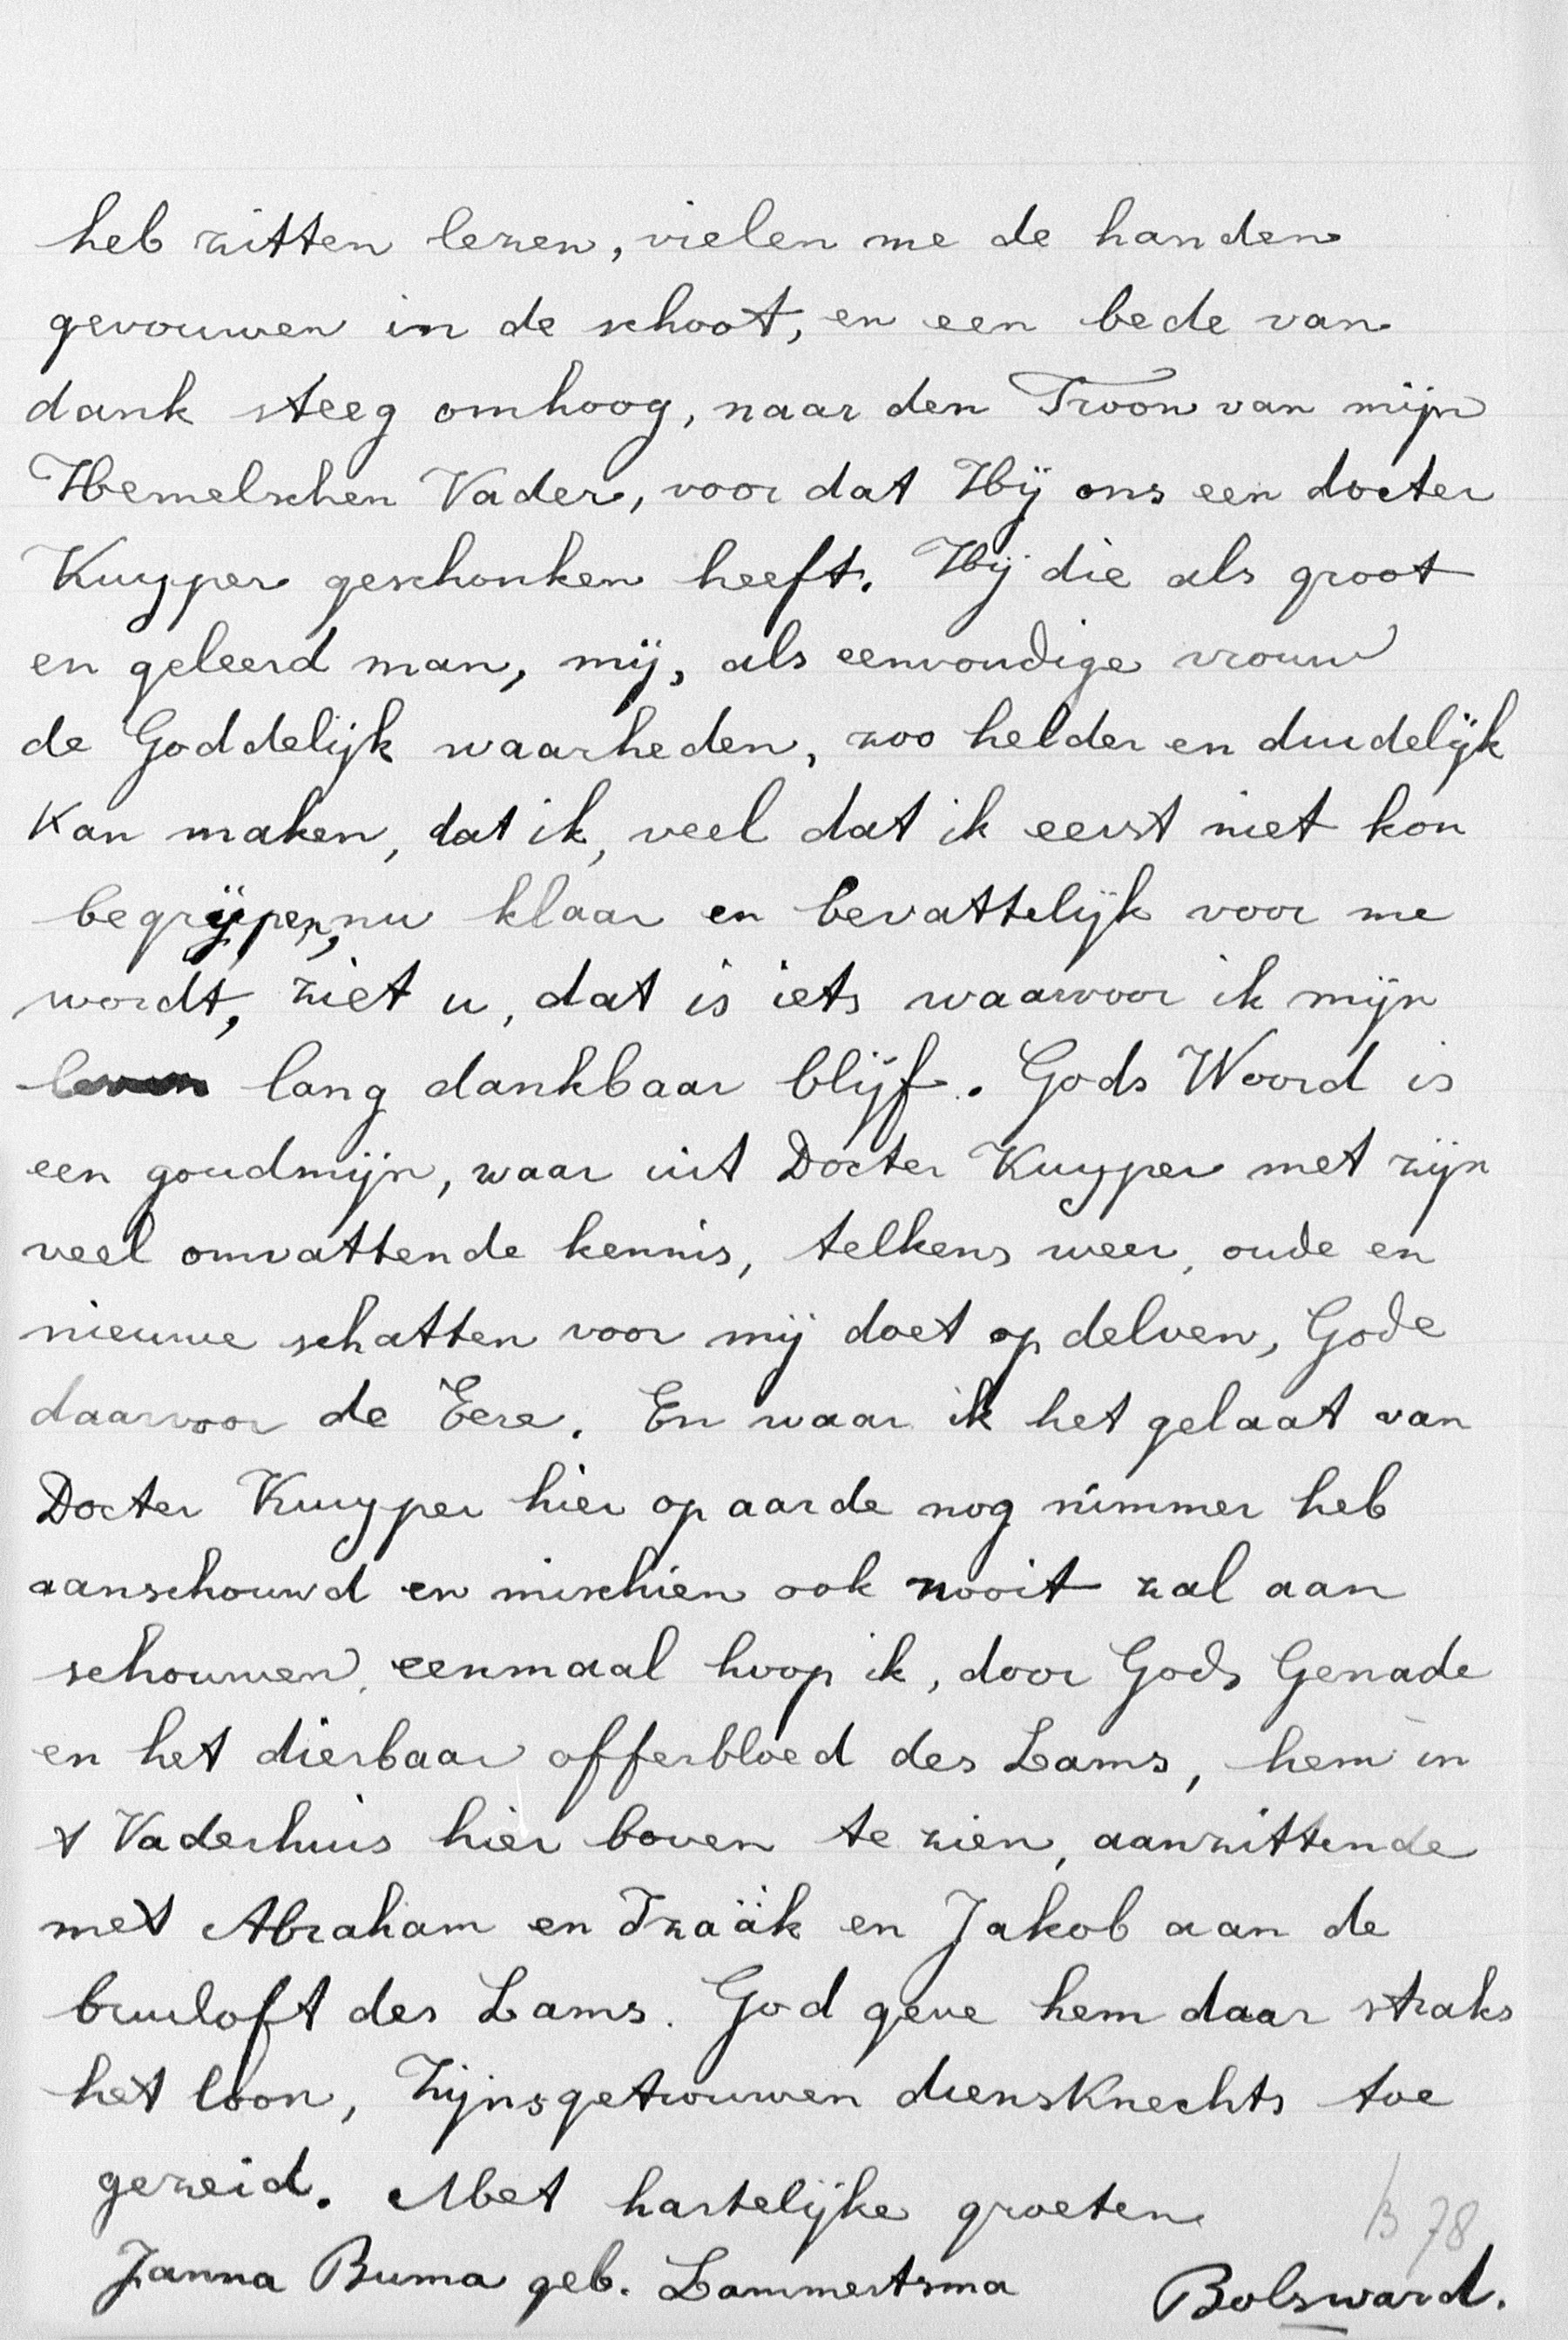 heb zitten lezen, vielen me de handen
gevouwen in de schoot, en een bede van
dank steeg omhoog, naar den Troon van mijn
Hemelschen Vader, voor dat Hij ons een docter
Kuyper geschonken heeft. Hij die als groot
en geleerd man, mij, als eenvoudige vrouw
de Goddelijk waarheden, zoo helder en duidelijk
kan maken, dat ik, veel dat ik eerst niet kon
begrijpen, nu klaar en bevattelijk voor me
wordt, ziet u, dat is iets waarvoor ik mijn
leven lang dankbaar blijf. Gods Woord is
een goudmijn, waar uit Docter Kuyper met zijn
veel omvattende kennis, telkens weer, oude en
nieuwe schatten voor mij doet op delven, Gode
daarvoor de Eere. En waar ik het gelaat van
Docter Kuyper hier op aarde nog nimmer heb
aanschouwd en mischien ook nooit zal aan
schouwen, eenmaal hoop ik, door Gods Genade
en het dierbaar offerbloed des Lams, hem in
t Vaderhuis hier boven te zien, aanzittende
met Abraham en Izaäk en Jakob aan de
bruiloft des Lams. God geve hem daar straks
het loon, Zijns getrouwen diensknechts toe
gezeid. Met hartelijke groeten
B 78
Janna Buma geb. Lammertsma Bolsward.